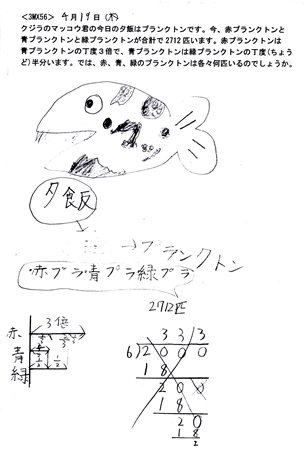 <3MX56> 4月19日(木)
クジラのマッコウ君の今日の夕飯はプランクトンです。今、赤プランクトンと
青プランクトンと緑プランクトンが合計で2712匹います。赤プランクトンは
青プランクトンの丁度3倍で、青プランクトンは緑プランクトンの丁度(ちょう
ど)半分います。では、赤、青、緑のプランクトンは各々何匹いるのでしょうか。
夕飯
プランクトン
赤プラ青プラ緑プラ
2712匹
3倍
赤
青
緑
3 3 3
6)2 0 0 0
1 8
2 0 0
1 8
2 0
1 8
2